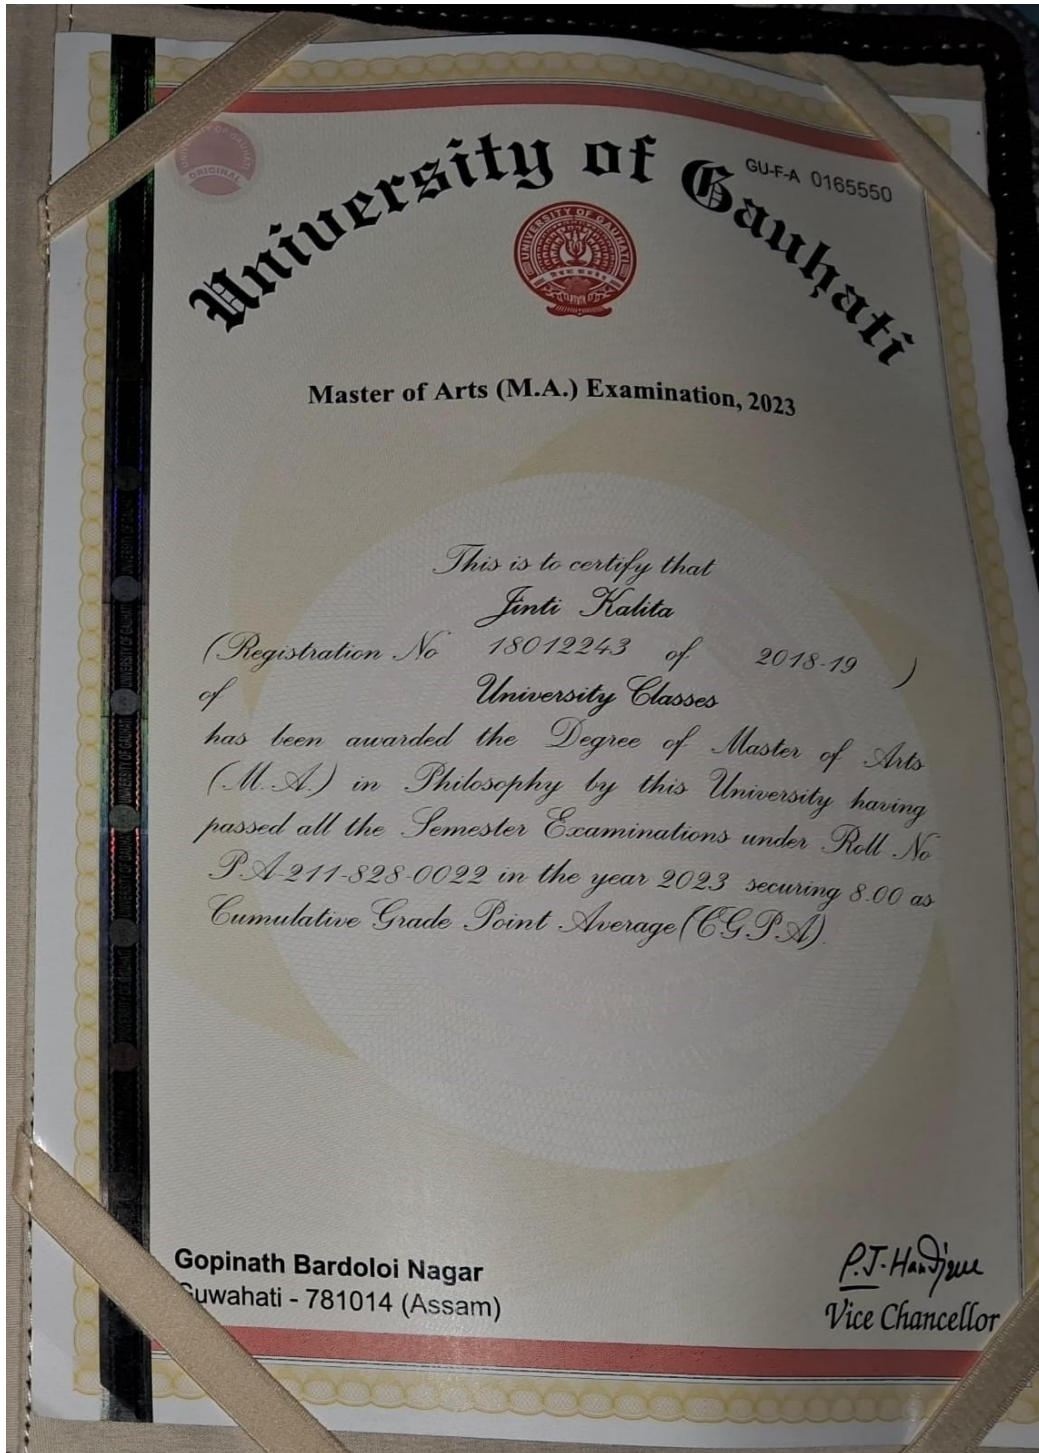 University of Gauhati
GU-F-A 0165550
UNIVERSITY OF GAUHATI
ORIGINAL
UNIVERSITY OF GAUHATI
Master of Arts (M.A.) Examination, 2023
This is to certify that
Jinti Kalita
(Registration No 18012243 of 2018-19 )
of University Classes
has been awarded the Degree of Master of Arts
(M.A.) in Philosophy by this University having
passed all the Semester Examinations under Roll No
PA-211-828-0022 in the year 2023 securing 8.00 as
Cumulative Grade Point Average(CGPA).
UNIVERSITY OF GAUHATI
UNIVERSITY OF GAUHATI
UNIVERSITY OF GAUHATI
UNIVERSITY OF GAUHATI
Gopinath Bardoloi Nagar
Guwahati - 781014 (Assam)
P.J. Handique
Vice Chancellor